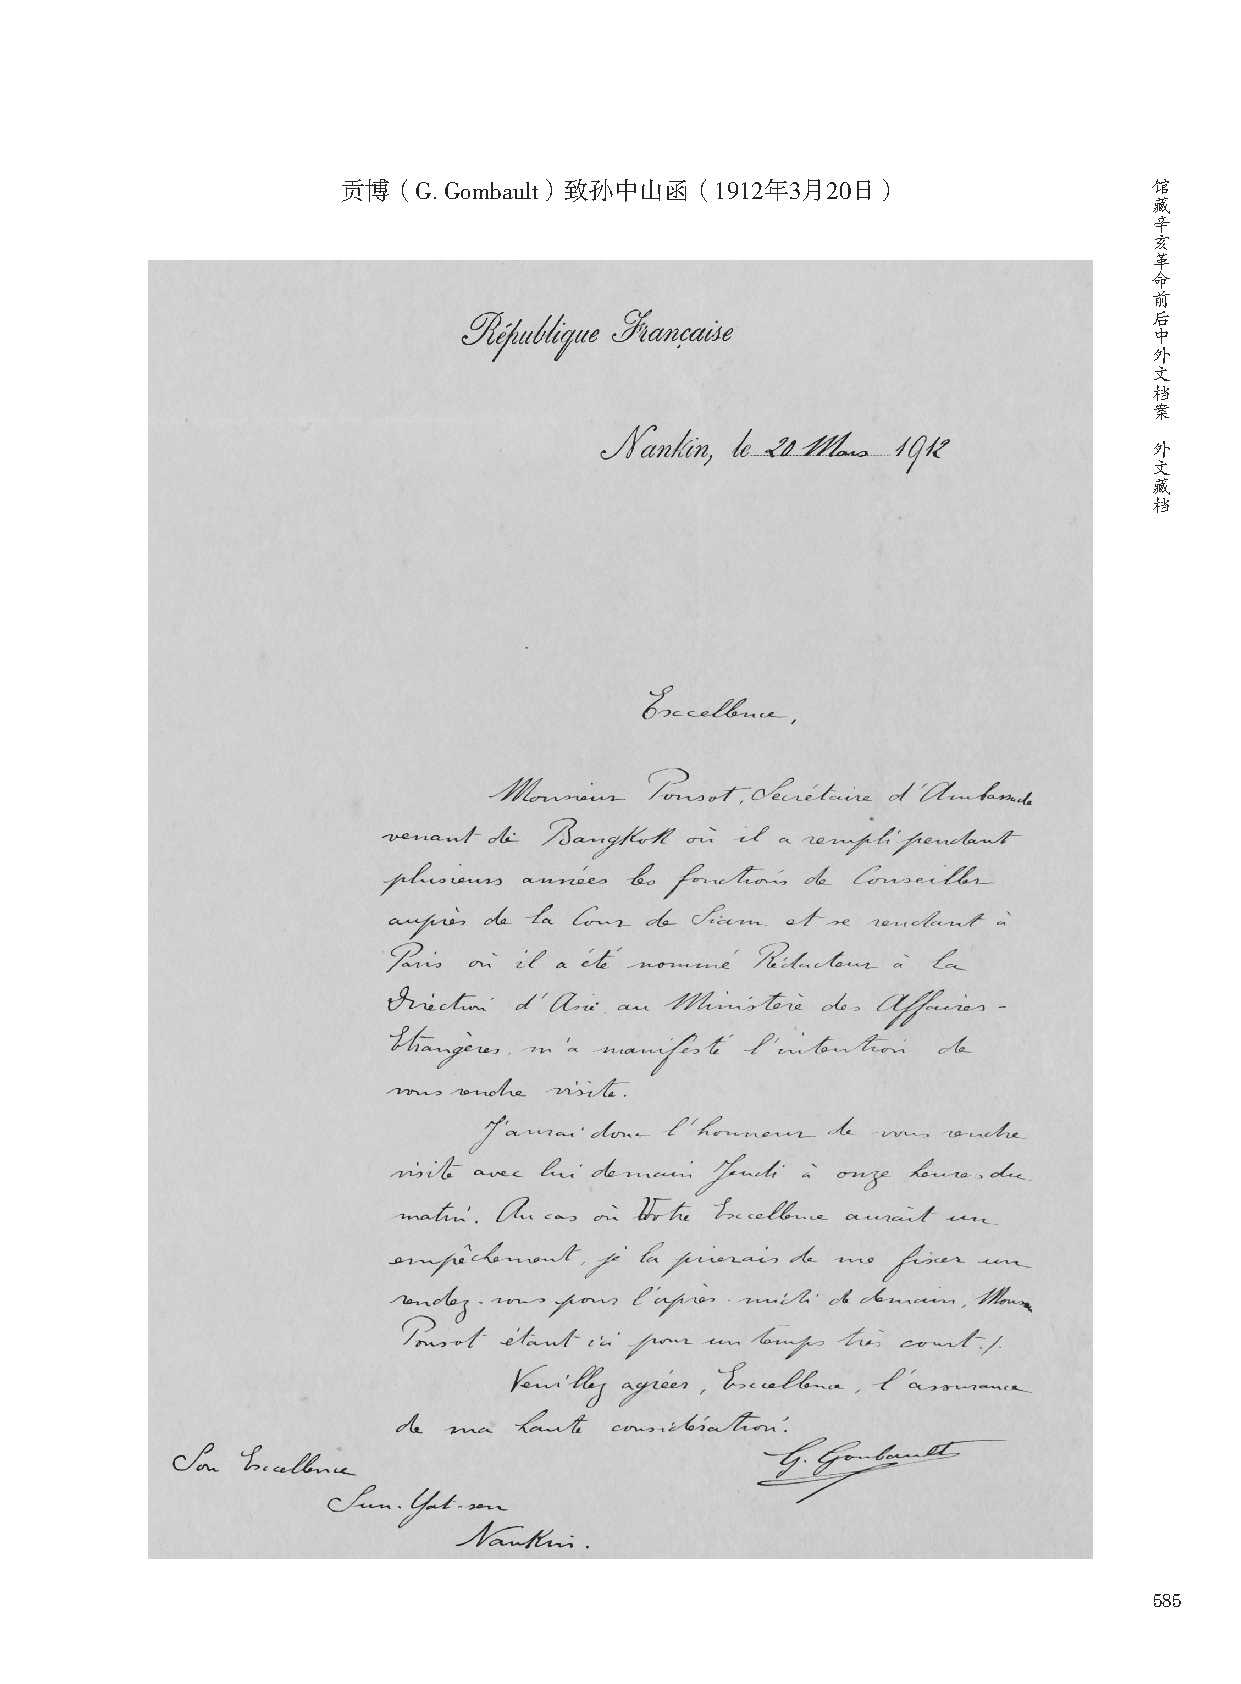 贡博（G. Gombault）致孙中山函（1912年3月20日）
馆藏辛亥革命前后中外文档案 外文藏档
République Française
Nankin, le 20 Mars 1912
Excellence,
Monsieur Ponsot, Secrétaire d'Ambassade
venant de Bangkok où il a rempli pendant
plusieurs années les fonctions de Conseiller
auprès de la Cour de Siam et se rendant à
Paris où il a été nommé Rédacteur à la
Direction d'Asie au Ministère des Affaires-
Etrangères, m'a manifesté l'intention de
vous rendre visite.
J'aurai donc l'honneur de vous rendre
visite avec lui demain Jeudi à onze heures du
matin. Au cas où Votre Excellence aurait un
empêchement, je la prierais de me fixer un
rendez-vous pour l'après-midi de demain, Monsieur
Ponsot étant ici pour un temps très court./.
Veuillez agréer, Excellence, l'assurance
de ma haute considération.
G. Gombault
Son Excellence
Sun-Yat-sen
Nankin.
585